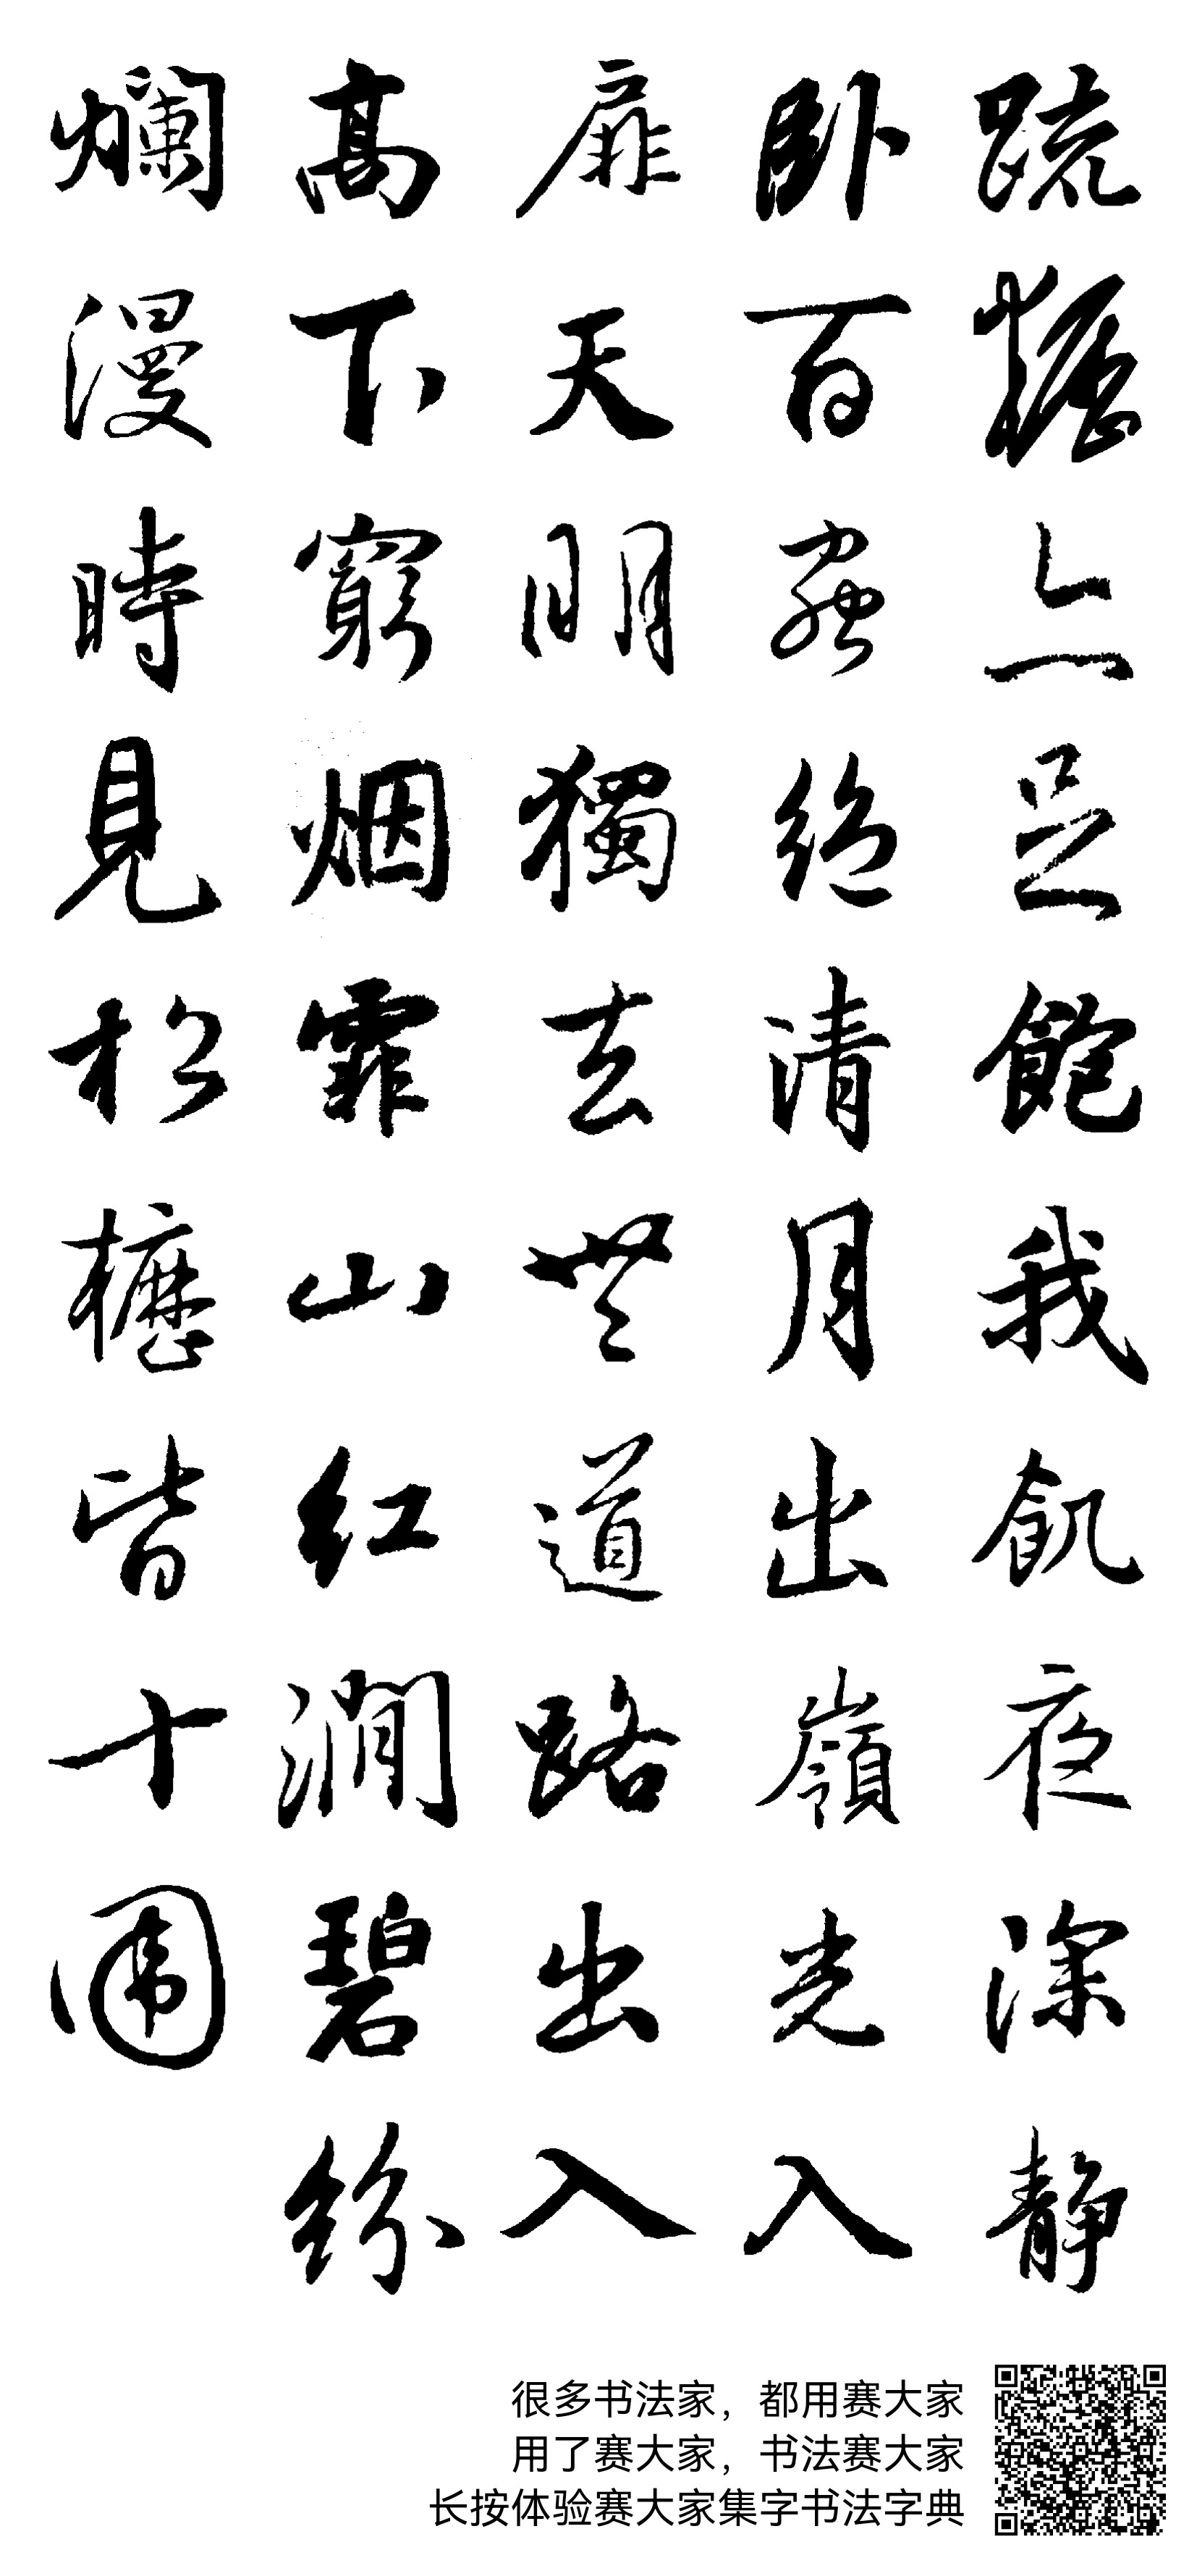 疏糲亦足飽我飢夜深靜
卧百蟲絶清月出嶺光入
扉天明獨去無道路出入
高下窮烟霏山紅澗碧紛
爛漫時見松櫪皆十圍
很多书法家，都用赛大家
用了赛大家，书法赛大家
长按体验赛大家集字书法字典